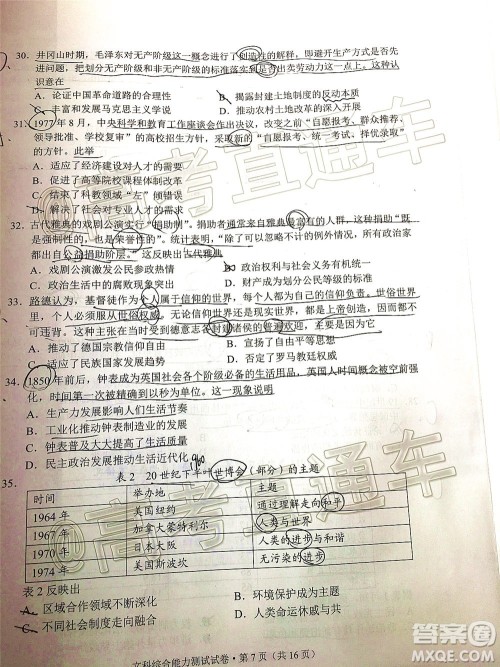 30. 井冈山时期，毛泽东对无产阶级这一概念进行了创造性的解释，即避开生产方式是否先
进问题，把划分无产阶级和非无产阶级的标准落实到是否出卖劳动力这一点上。这种认
识意在
A. 论证中国革命道路的合理性 B. 揭露封建土地制度的反动本质
C. 丰富和发展马克思主义学说 D. 推动农村土地改革的深入开展
31. 1977年8月，中央科学和教育工作座谈会作出决议，改变之前"自愿报考、群众推荐、
领导批准、学校复审"的高校招生方针，采取新的"自愿报考、统一考试、择优录取"
的方针。此举
A. 适应了经济建设对人才的需要
B. 促进了高等院校课程体制改革
C. 结束了科教领域"左"倾错误
D. 解决了社会对专业人才的需求
32. 古代雅典的戏剧公演实行"捐助制"。捐助者通常来自雅典最富有的人群，这种捐助"既
是强制性的，也是荣誉性的"。统计表明，"除了极少不可统计的例外情况，所有政治家
都出自公益捐助阶层"。这反映出古代雅典
A. 戏剧公演激发公民参政热情 B. 政治权利与社会义务有机统一
C. 政治生活中的腐败现象突出 D. 财产成为划分公民等级的标准
33. 路德认为，基督徒作为个人属于信仰的世界，每个人都应自己对信仰负责。世俗世界
里，个人必须服从世俗权威，无论信仰世界，还是世俗世界，都是上帝创造，因而不
可违背。这种主张在当时受到德意志各封建诸侯的普遍欢迎，主要是因为它
A. 推动了德国宗教信仰自由 B. 顺应了诸侯割据的要求
C. 适应了民族国家发展趋势 D. 否定了罗马教廷权威
34. 1850年前后，钟表成为英国社会各个阶级必备的生活用品，英国人时间概念被空前强
化，时间第一次被精打细算到以秒为单位。这一现象说明
A. 生产力发展影响人们生活节奏
B. 工业化推动钟表制造业的发展
C. 钟表普及大大提高了生活质量
D. 民主政治发展改变人们生活
1960
35. 表2 20世纪下半叶世博会（部分）的主题
时间 举办地 主题
1964年 美国纽约 通过理解走向和平
1967年 加拿大蒙特利尔 人类与世界
1970年 日本大阪 人类的进步与和谐
1974年 美国斯波坎 无污染的进步
表2反映出
A. 区域合作领域不断深化 B. 环境保护成为主题
C. 不同社会制度走向融合 D. 人类命运休戚与共
文科综合能力测试试卷·第7页（共16页）
@高考直通车
@高考直通车
答案圈
MXQE.COM